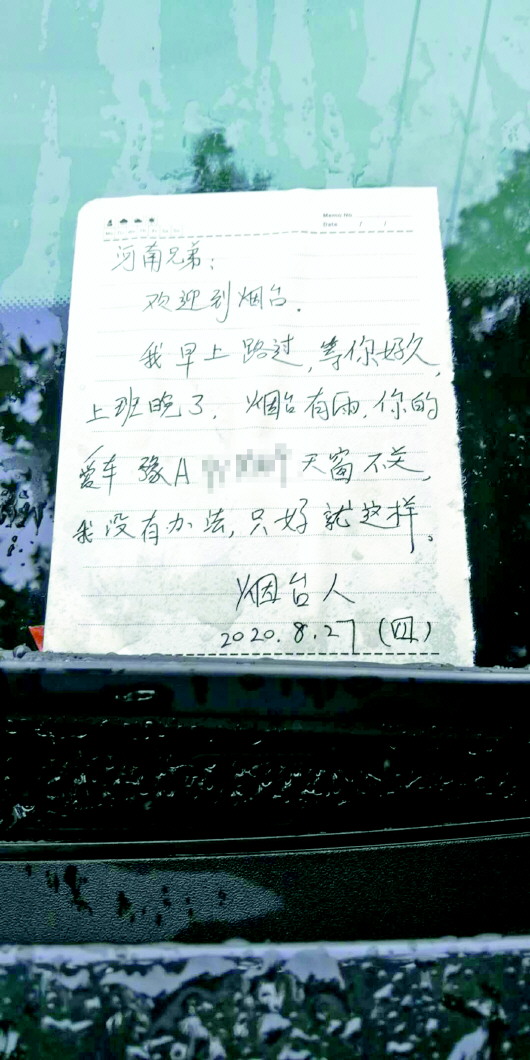 Memo No.
Date / /
河南兄弟：
欢迎到烟台.
我早上路过,等你好久,
上班晚了. 烟台有雨,你的
爱车 豫A 天窗不关,
我没有办法,只好就这样。
烟台人
2020.8.27 (四)